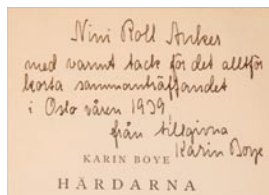 Nini Roll Anker
med varmt tack för det alltför
korta sammanträffandet
i Oslo våren 1939,
från tillgivna
Karin Boye
KARIN BOYE
HÄRDARNA